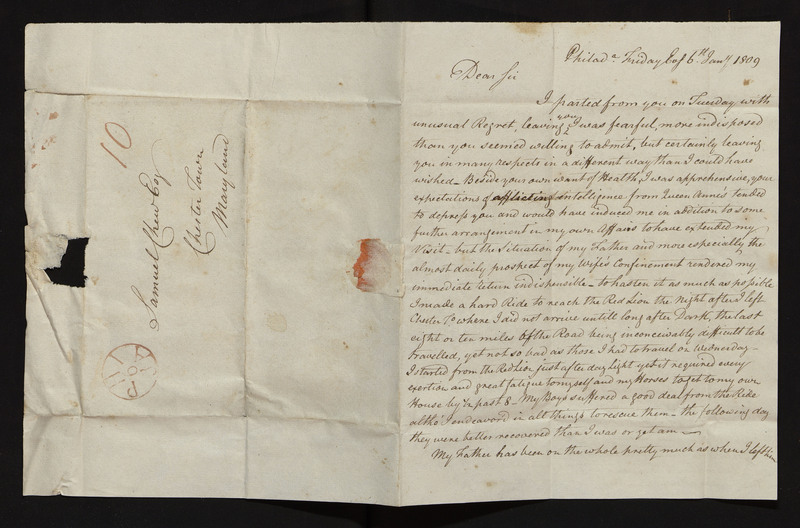 10
Samuel Chew Esqr
Chester Town
Maryland
Philada. Friday Eveg 6th Jany 1809
Dear Sir
I parted from you on Tuesday with
unusual Regret, leaving you I was fearful, more indisposed
than you seemed willing to admit, but certainly leaving
you in many respects in a different way than I could have
wished - Beside your own want of Health, I was apprehensive, your
expectations of afflicting intelligence from Queen Anne's tended
to depress you and would have induced me in addition to some
further arrangement in my own Affairs to have extended my
Visit - but the Situation of my Father and more especially the
almost daily prospect of my Wife's Confinement rendered my
immediate return indispensible - to hasten it as much as possible
I made a hard Ride to reach the Red Lion the Night after I left
Chester To. where I did not arrive untill long after Dark, the last
eight or ten miles of the Road being inconceivably difficult to be
travelled, yet not so bad as those I had to travel on Wednesday -
I started from the Red Lion just after day light yet it required every
exertion and great fatigue to myself and my Horses to get to my own
House by ½ past 8 - My Boys suffered a good deal from the Ride
altho' I endeavord in all things to rescue them - the following day
they were better recovered than I was or yet am -
My Father has been on the whole pretty much as when I left him